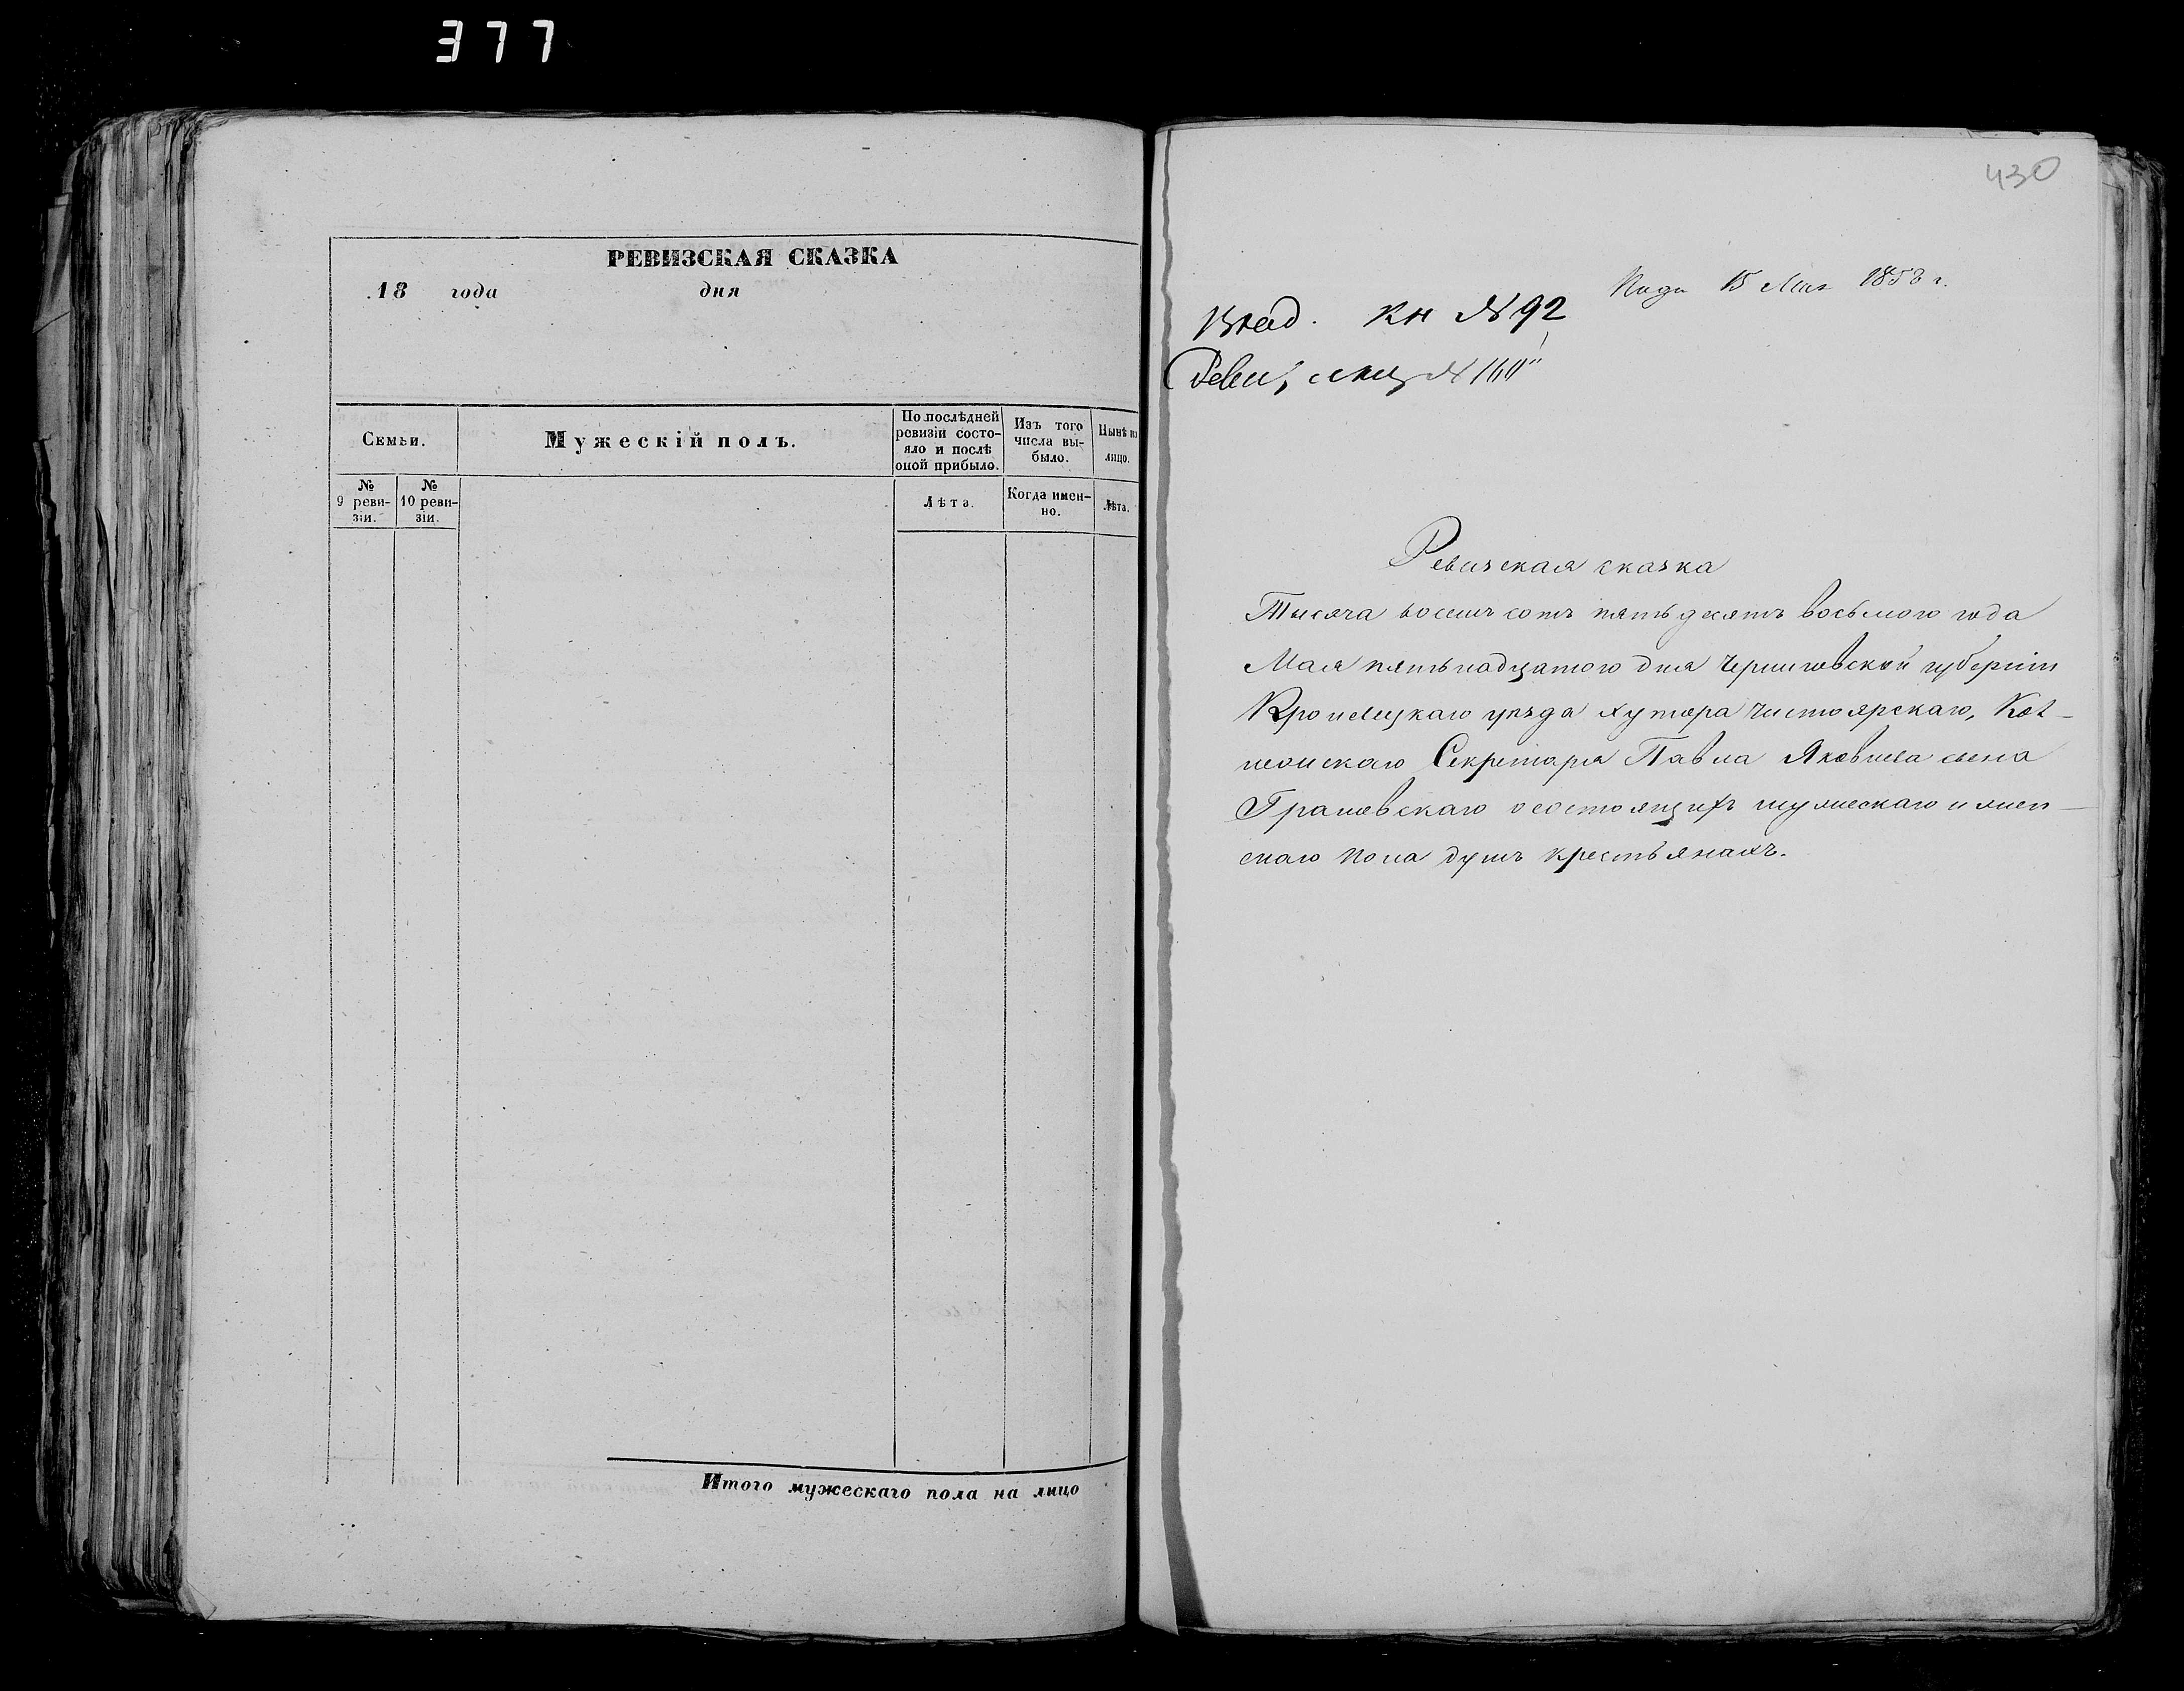 377
РЕВИЗСКАЯ СКАЗКА
18 года дня
Семьи.
Мужескій полъ.
По послѣдней ревизіи состо-
яло и послѣ оной прибыло.
Изъ того числа вы-
было.
Нынѣ на лицо.
№ 9 реви-
зіи.
№ 10 реви-
зіи.
Лѣта.
Когда имен-
но.
Лѣта.
Итого мужескаго пола на лицо
430
15 Мая 1858 г.
Кн № 92
№
Ревизская сказка
Тысяча восемь сотъ пятьдесятъ восьмого года
Мая пятьнадцатого дня Черниговской губерніи
Кролевецкаго уѣзда хутора Чистоярскаго, Кол-
лежскаго Секретаря Павла Яковлева сына
о состоящихъ мужескаго и жен-
скаго пола душъ крестьянахъ.